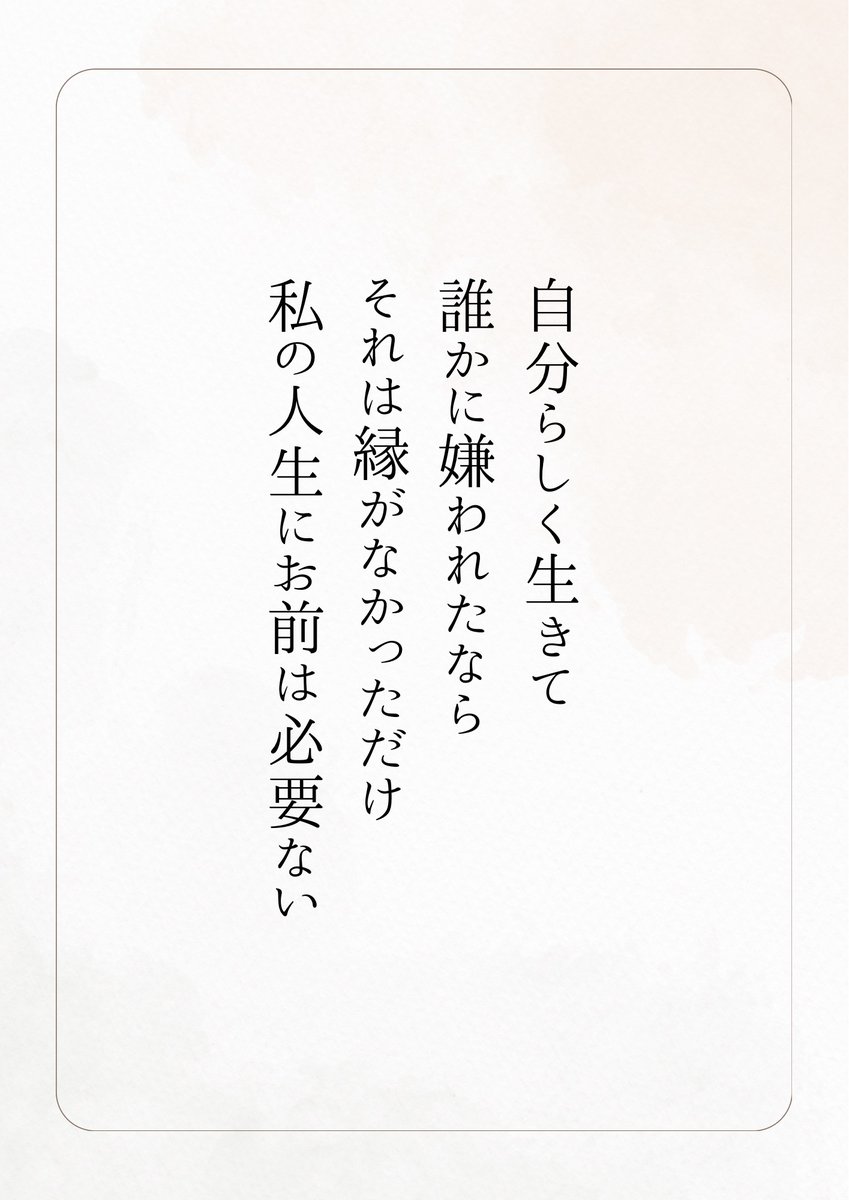 自分らしく生きて
誰かに嫌われたなら
それは縁がなかっただけ
私の人生にお前は必要ない